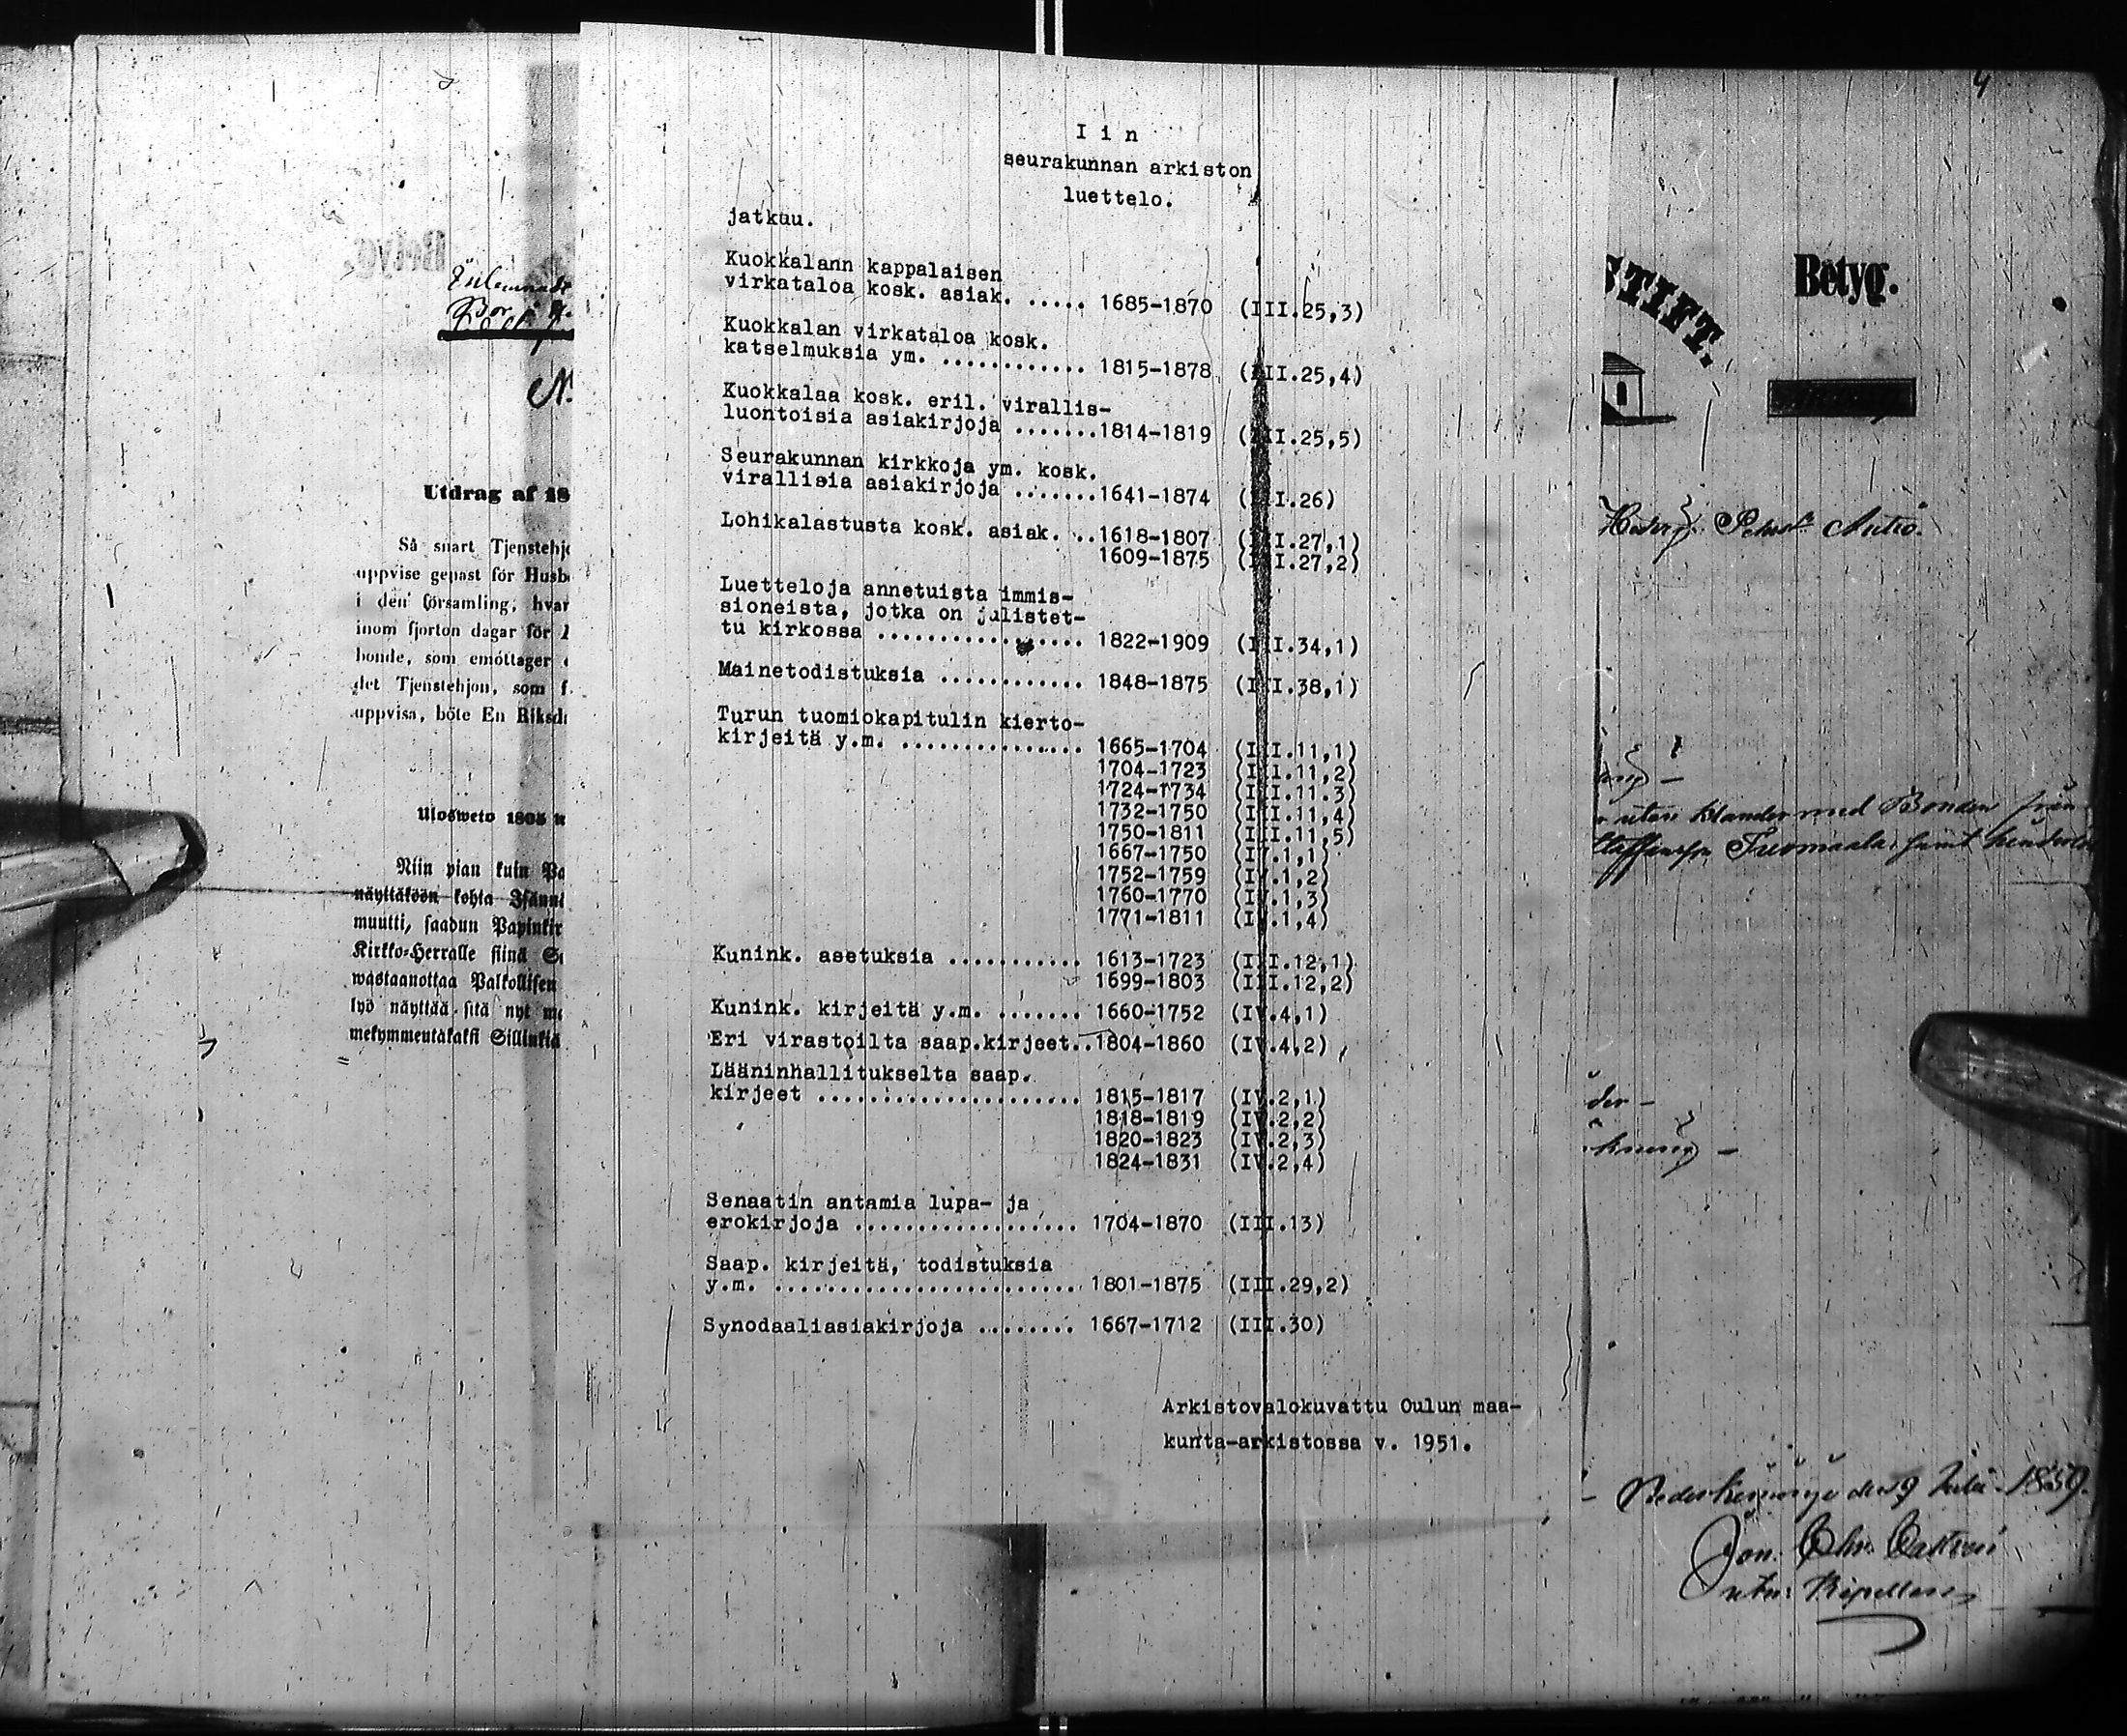 Utdrag af 18
Så snart Tjenstehjo
uppvise genast för Husb
i den församling, hvar
inom fjorton dagar för
bonde, som emottager
det Tjenstehjon, som f
uppvisa, böte En Riksd
Ulosweto 1805
Niin pian kuin Pa
näyttäköön kohta Isänn
muutti, saadun Papinkir
Kirkko-Herralle siinä S
wastaanottaa Palkollisen
lyö näyttää sitä nyt m
mekymmentäkaksi Sillinkiä
I i n
seurakunnan arkiston
luettelo.
jatkuu.
Kuokkalann kappalaisen
virkataloa kosk. asiak. ..... 1685-1870 (III.25,3)
Kuokkalan virkataloa kosk.
katselmuksia ym. ............ 1815-1878 (III.25,4)
Kuokkalaa kosk. eril. virallis-
luontoisia asiakirjoja .......1814-1819 (III.25,5)
Seurakunnan kirkkoja ym. kosk.
virallisia asiakirjoja .......1641-1874 (III.26)
Lohikalastusta kosk. asiak. ..1618-1807 (III.27,1)
1609-1875 (III.27,2)
Luetteloja annetuista immis-
sioneista, jotka on julistet-
tu kirkossa ................. 1822-1909 (III.34,1)
Mainetodistuksia ............ 1848-1875 (III.38,1)
Turun tuomiokapitulin kierto-
kirjeitä y.m. ............... 1665-1704 (III.11,1)
1704-1723 (III.11,2)
1724-1734 (III.11.3)
1732-1750 (III.11,4)
1750-1811 (III.11,5)
1667-1750 (IV.1,1)
1752-1759 (IV.1,2)
1760-1770 (IV.1,3)
1771-1811 (IV.1,4)
Kunink. asetuksia ........... 1613-1723 (III.12,1)
1699-1803 (III.12,2)
Kunink. kirjeitä y.m. ....... 1660-1752 (IV.4,1)
Eri virastoilta saap.kirjeet..1804-1860 (IV.4,2)
Lääninhallitukselta saap.
kirjeet ..................... 1815-1817 (IV.2,1)
1818-1819 (IV.2,2)
1820-1823 (IV.2,3)
1824-1831 (IV.2,4)
Senaatin antamia lupa- ja
erokirjoja .................. 1704-1870 (III.13)
Saap. kirjeitä, todistuksia
y.m. ........................ 1801-1875 (III.29,2)
Synodaaliasiakirjoja ........ 1667-1712 (III.30)
Arkistovalokuvattu Oulun maa-
kunta-arkistossa v. 1951.
4
STIFT.
Betyg.
utan klander med Bonden från
samt
den 9 Julii 1859.